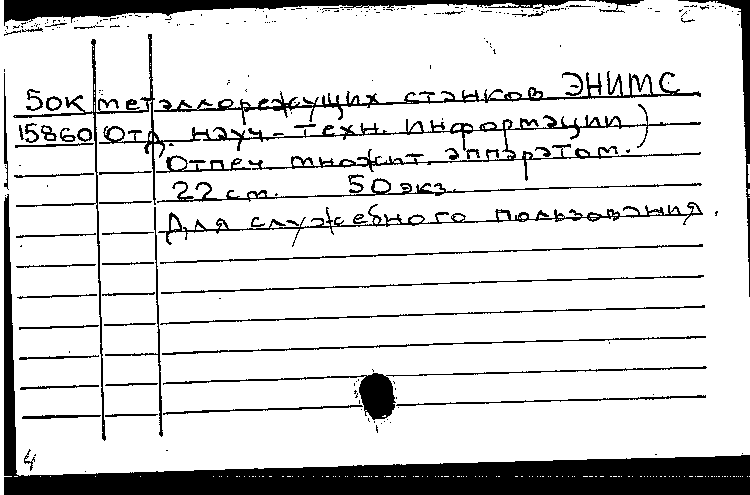 50К металлорежущих станков ЭНИМС
15860 Отд. науч-техн. информации).
Отпеч. множит. аппаратом.
22 см. 50 экз.
Для служебного пользования.
4